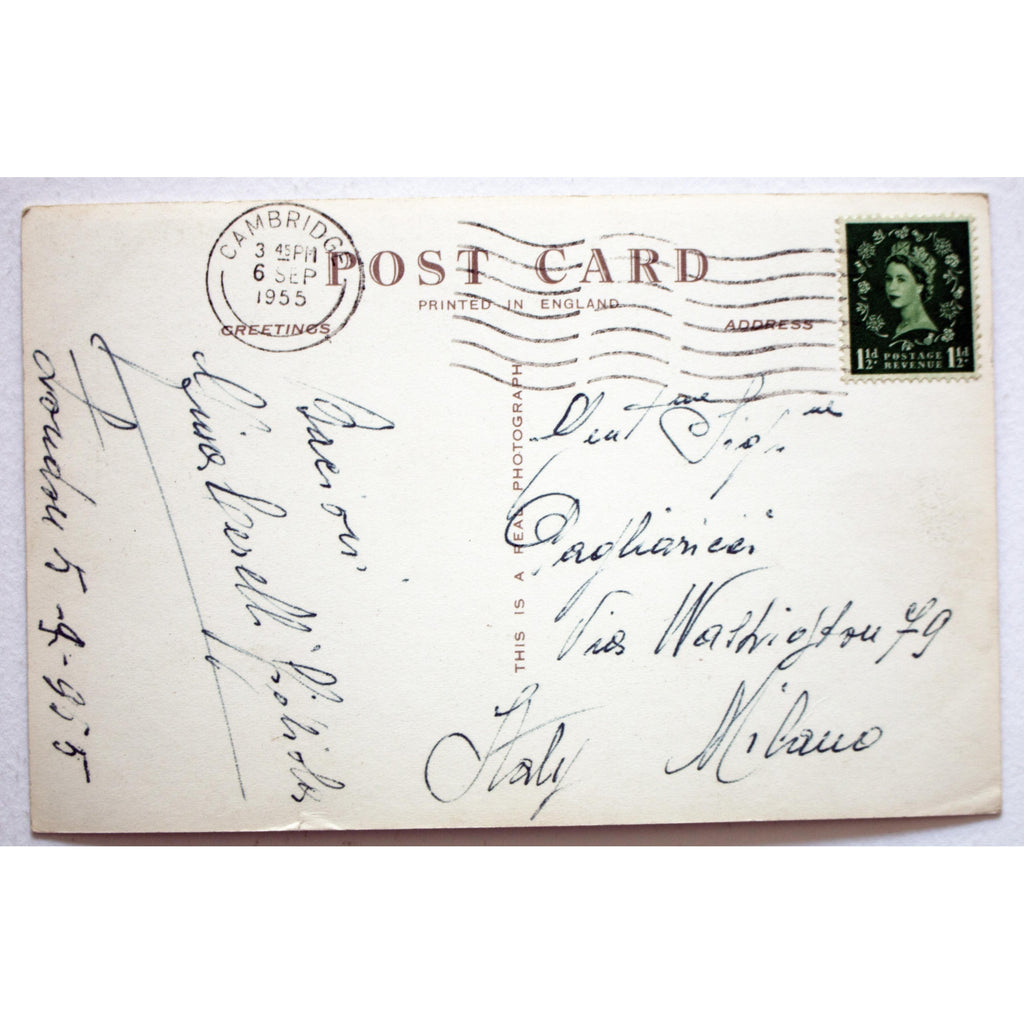 CAMBRIDGE
3 45 PM
6 SEP
1955
POST CARD
PRINTED IN ENGLAND
GREETINGS
ADDRESS
1½d POSTAGE REVENUE 1½d
THIS IS A REAL PHOTOGRAPH
London 5-9-955
Bacioni
Gent.me Sig.ne
Pagliaricci
Via Washington 79
Milano
Italy